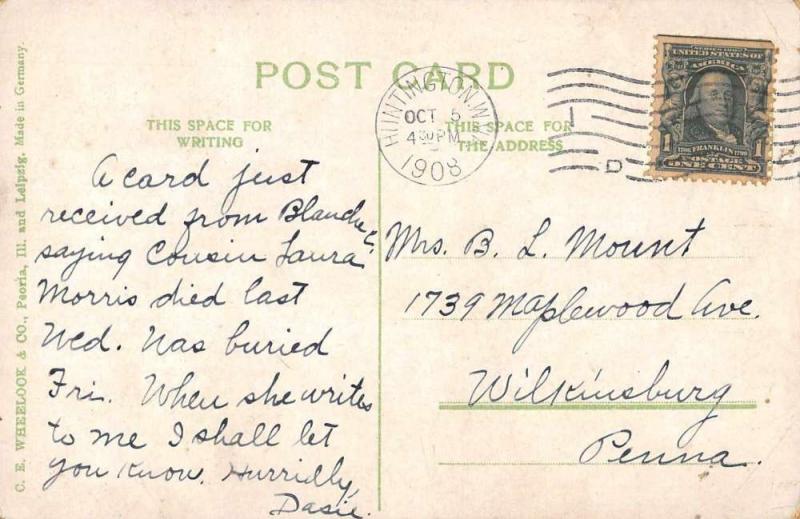 POST CARD
THIS SPACE FOR
WRITING
THIS SPACE FOR
THE ADDRESS
HUNTINGTON. W.
OCT 5
4 30 PM
1908
D
SERIES 1902
UNITED STATES OF
AMERICA
1 FRANKLIN 1
POSTAGE
ONE CENT
A card just
received from Blanche C.
saying Cousin Laura
Morris died last
Wed. Was buried
Fri. When she writes
to me I shall let
you know. Hurridly,
Dasie.
Mrs. B. L. Mount
1739 Maplewood Ave.
Wilkinsburg
Penna.
C. E. WHEELOCK & CO., Peoria, Ill. and Leipzig. Made in Germany.